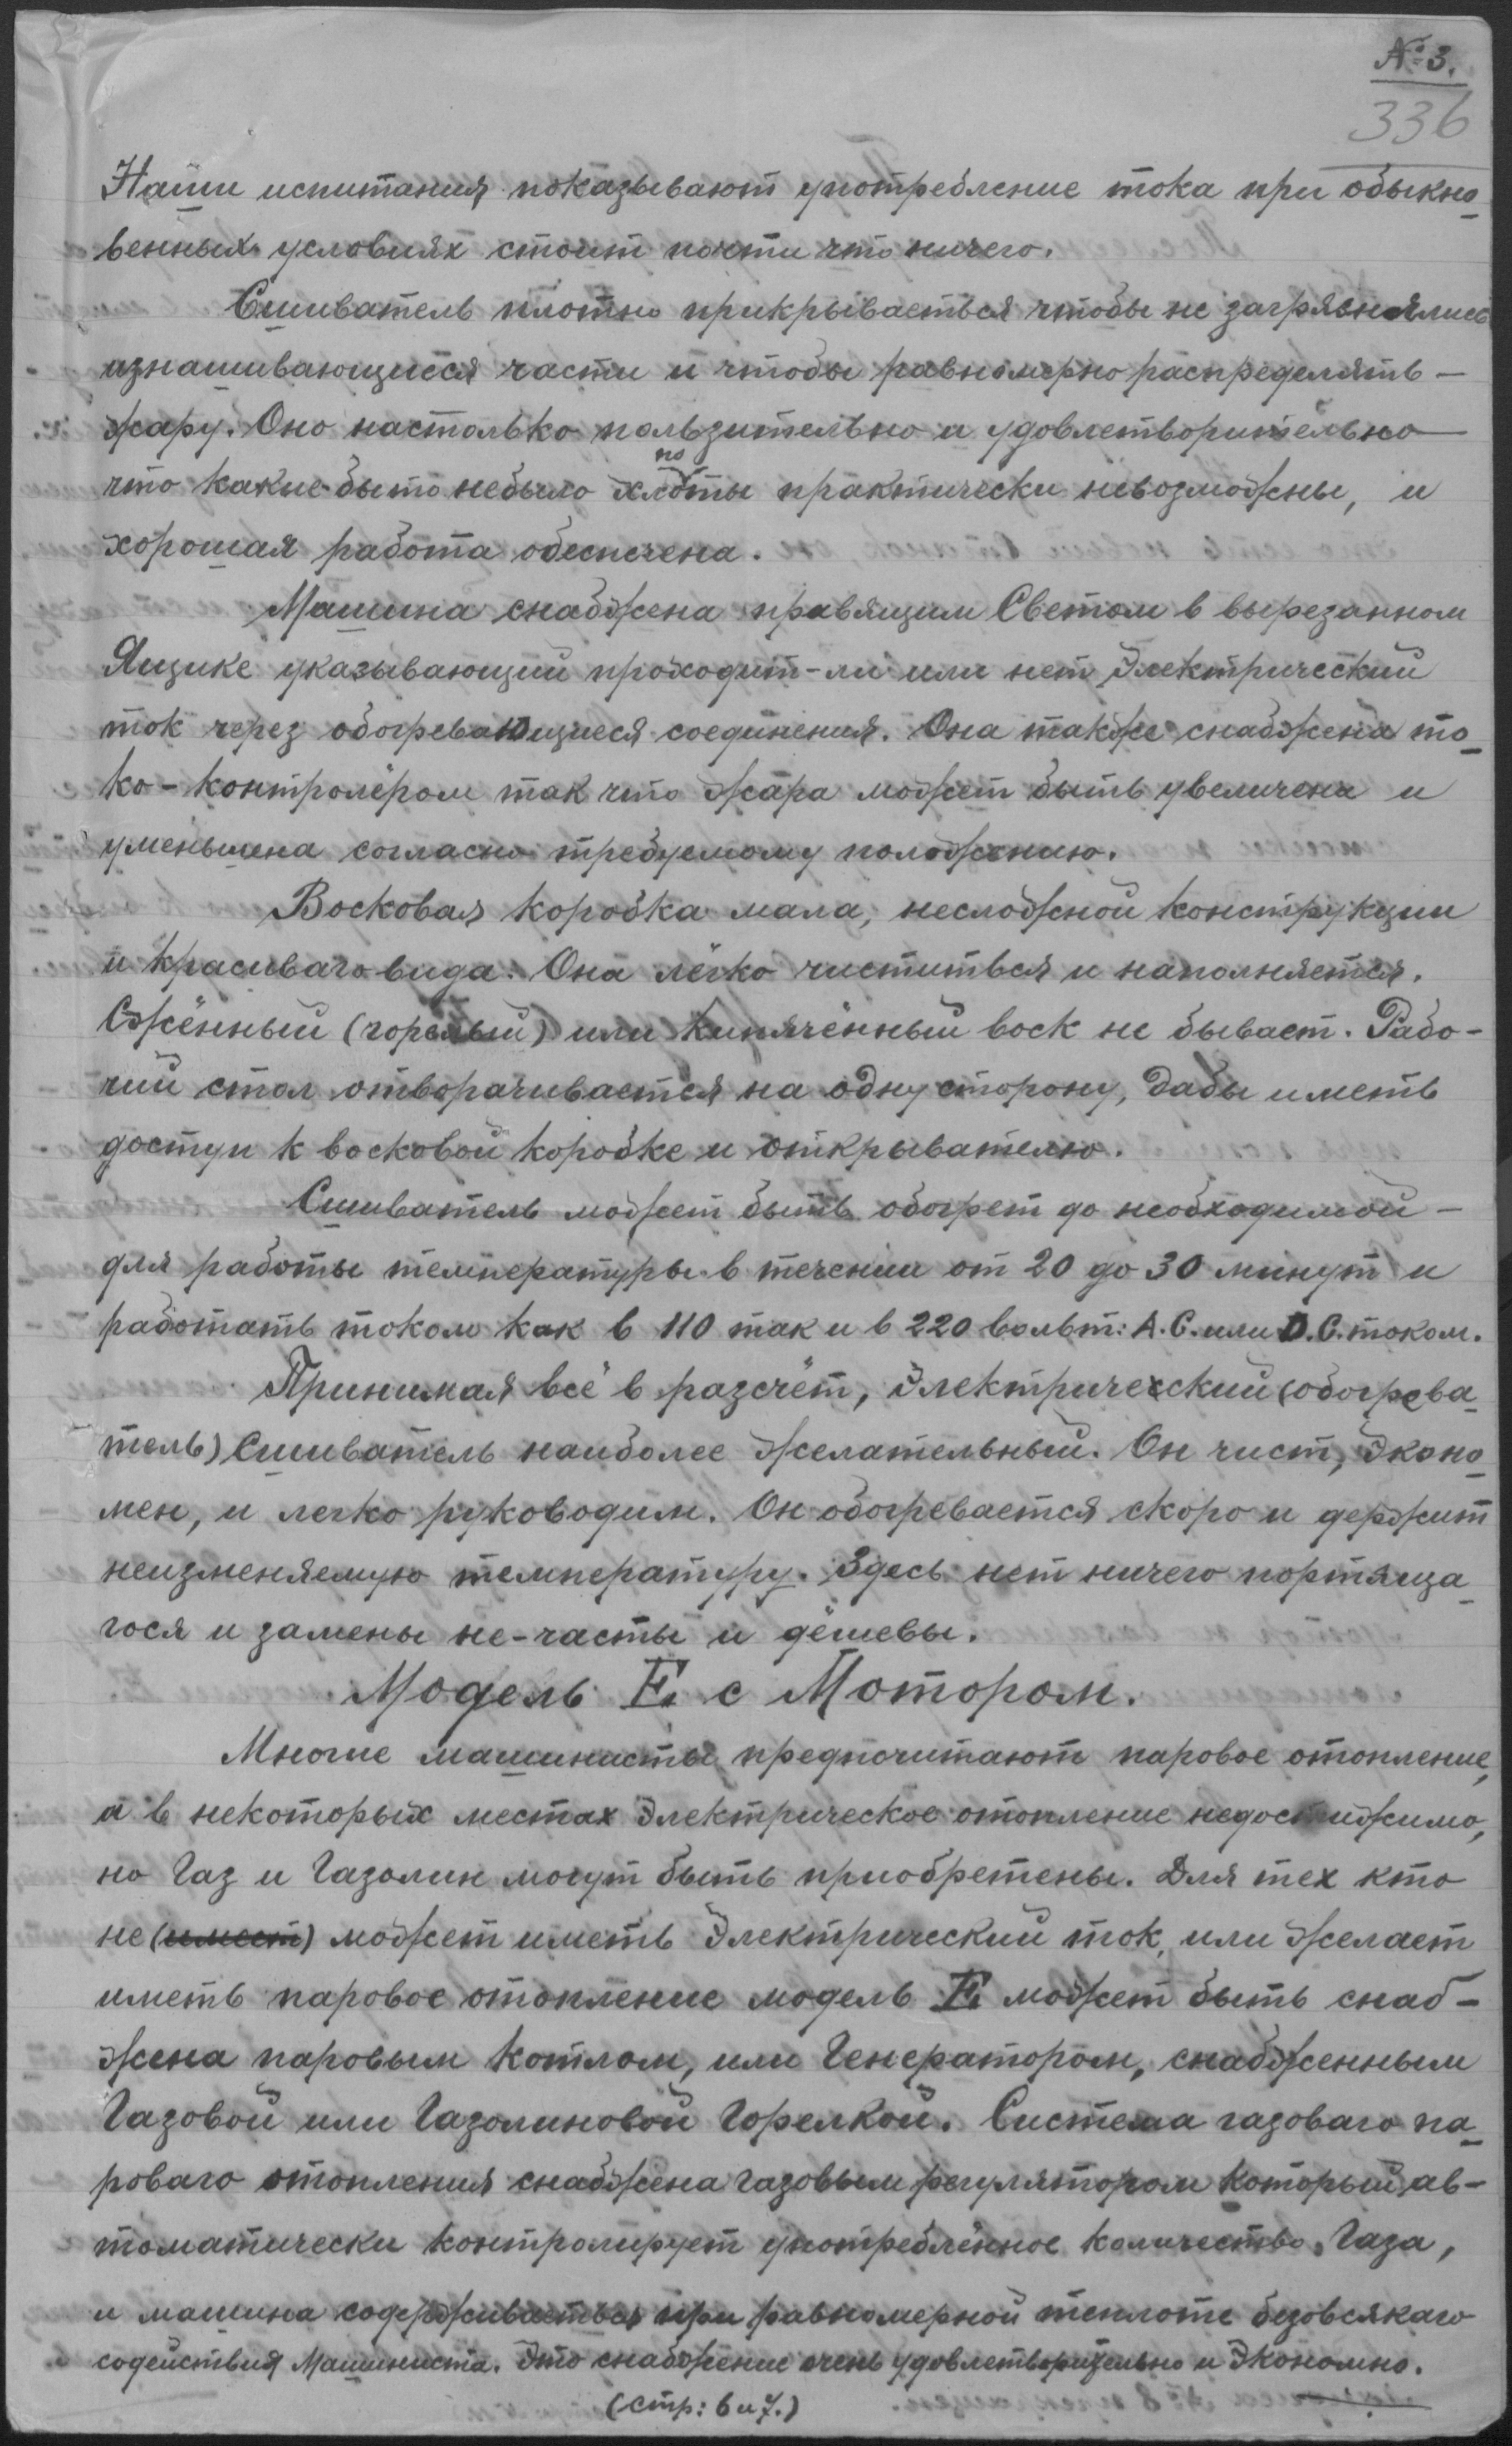 № 3.
336
Наши испитания показывают употребление тока при обыкно-
венных условиях стоит почти что ничего.
Сшиватель плотно прикрываеться чтобы не загрязнялись
изнашивающиеся части и чтобы равномерно распределять -
жару. Оно настолько пользительно и удовлетворительно
что какие-бы то небыло хлопоты практически невозможны, и
хорошая работа обеспечена.
Машина снабжена правящим Светом в вырезанном
Ящике указывающий проходит-ли или нет Электрический
ток через обогревающиеся соединения. Она также снабжена то-
ко-контролёром так что жара может быть увеличена и
уменьшена согласно требуемому положению.
Восковая коробка мала, несложной конструкции
и красиваго вида. Она лёгко чиститься и наполняется.
Сжённый (горелый) или Кипячённый воск не бывает. Рабо-
чий стол отворачивается на одну сторону, дабы иметь
доступ к восковой коробке и открывателю.
Сшиватель может быть обогрет до необходимой -
для работы температуры в течении от 20 до 30 минут и
работать током как в 110 так и в 220 вольт: А.С. или D.С. током.
Принимая всё в разсчёт, Электрический (обогрева-
тель) Сшиватель наиболее желательный. Он чист, Эконо-
мен, и легко руководим. Он обогревается скоро и держит
неизменяемую температуру. Здесь нет ничего портяща-
гося и замены не-часты и дёшевы.
Модель E с Мотором.
Многие машинисты предпочитают паровое отопление,
а в некоторых местах Электрическое отопление недостижимо,
но Газ и Газолин могут быть приобретены. Для тех кто
не (имеет) может иметь Электрический ток, или желает
иметь паровое отопление модель E может быть снаб-
жена паровым котлом, или Генератором, снабженным
Газовой или Газолиновой Горелкой. Система газоваго па-
роваго отопления снабжена газовым регулятором который ав-
томатически контролирует употреблённое количество Газа,
и машина содерживаеться при равномерной теплоте безовсякаго
содействия Машиниста. Это снабжение очень удовлетворительно и Экономно.
(стр: 6 и 7.)